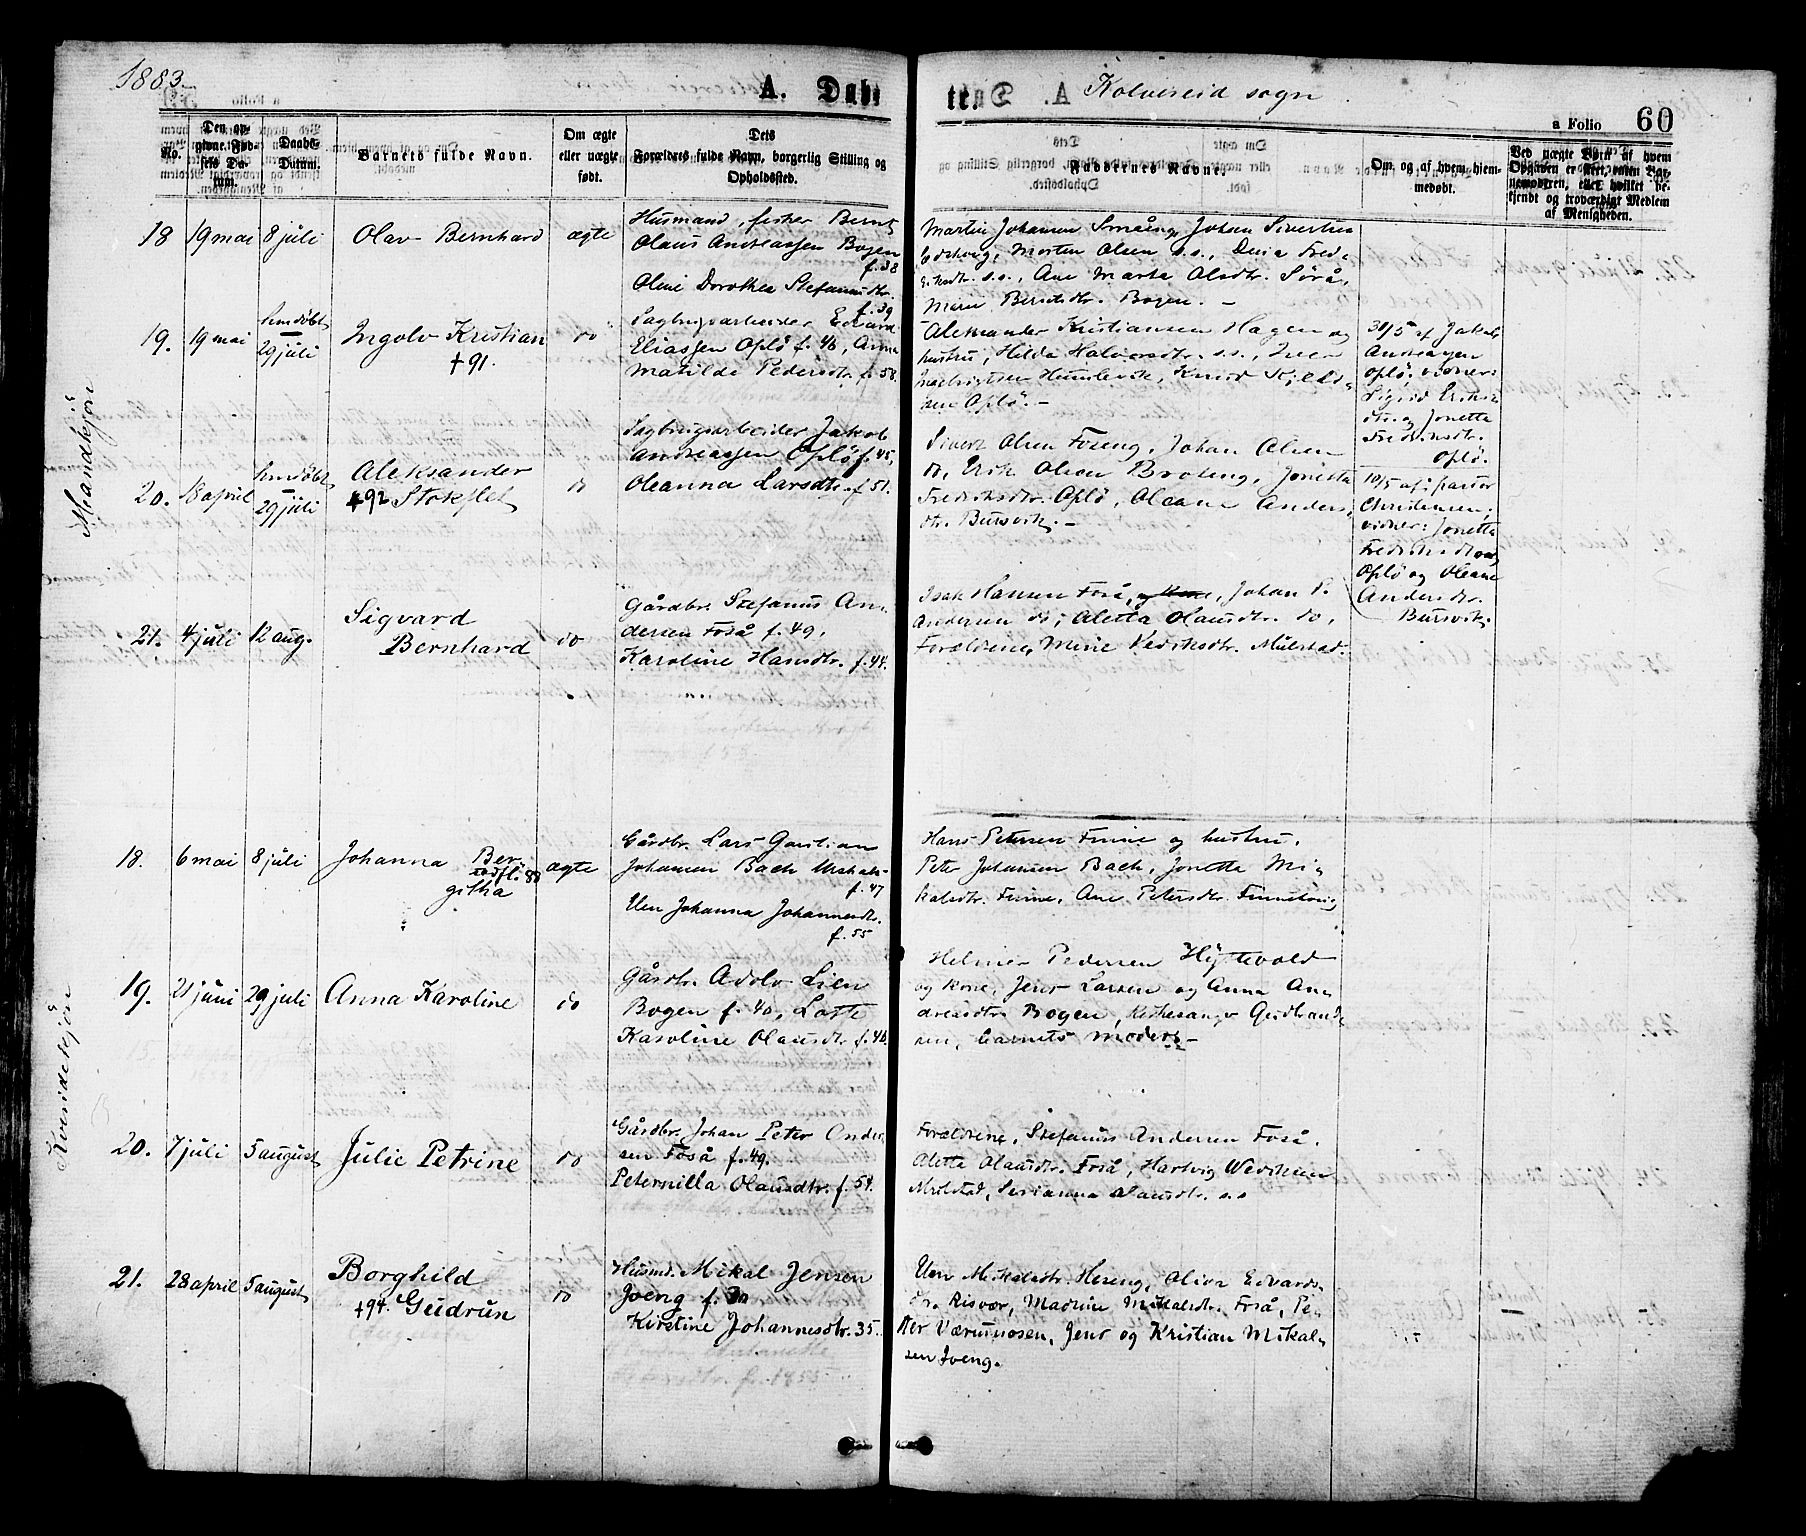 1883
A. Døbte
A. Kolvereid sogn
a Folio 60
No.
Den opgivne Fødsels Datum.
Daabs-Datum.
Barnets fulde Navn.
Om ægte eller uægte født.
Dets Forældres fulde Navn, borgerlig Stilling og Opholdssted.
Faddernes Navne.
Om, og af hvem, hjemmedøbt.
Ved uægte Børn af hvem Opgaven er skeet, uden Barnemoderen, eller hvilket bekjendt og troværdigt Medlem af Menigheden.
Mandkjøn
18 19 mai 8 juli Olav Bernhard ægte
Husmand, fisker Bernt
Olaus Andreassen Bogen
f. 38
Oline Dorothea Stefanusdtr.
f. 39
Martin Johansen Småeng, Johan Sivertsen
Edshvig, Morten Olsen s.s., Dina Fred-
riksdtr. s.s., Ane Marta Olsdtr. Sørå,
Mari Berntsdtr. Bogen. -
19. 19 mai hmdøbt 29 juli Ingolv Kristian do
+ 91.
Sagbrugsarbeider Edvard
Eliassen Oplø f. 46, Anna
Matilde Pedersdtr. f. 58.
Aleksander Kristiansen Hagen og
hustru, Hilda Halvorsdtr. s.s., Iver
Ingebrigtsen Humlevik, Knud Kjeld-
sen Oplø. -
30/5 af Jakob
Andreassen
Oplø, vidner:
Sigrid Eriks-
dtr. og Jonetta
Fredriksdtr.
Oplø.
20. 18 april hmdøbt 29 juli Aleksander
+92 Stokflet do
Sagbrugsarbeider Jakob
Andreassen Oplø f. 45,
Oleanna Larsdtr. f. 51.
Sivert Olsen Foseng, Johan Olsen
do, Erik Olsen Broteng, Jonetta
Fredriksdtr. Oplø, Oleane Anders-
dtr. Bursvik. -
10/5 af: pastor
Christensen;
vidner: Jonetta
Fredriksdtr,
Oplø og Oleane
Andersdtr.
Bursvik.
21. 4 juli 12 aug. Sigvard
Bernhard do
Gårdbr. Stefanus An-
dersen Foså f. 49,
Karoline Hansdtr. f. 44.
Isak Hansen Foså, og kone, Johan P.
Andersen do, Aletta Olausdtr. do,
Forældrene, Mine Vediksdtr. Mulstad.
Kvindekjøn
18. 6 mai 8 juli Johanna Ber-
githa ægte
Gårdbr. Lars Gustian
Johansen Bach
f. 47
Elen Johanna Johannesdtr.
f. 55
Hans Petersen Finne og hustru,
Peter Johansen Bach, Jonetta Mi-
kalsdtr. Finne, Ane Petersdtr. Finnehvig
19. 21 juni 29 juli Anna Karoline do
Gårdbr. Adolv Lien
Bogen f. 40, Lotte
Karoline Olausdtr. f. 46.
Helmer Pedersen Hyttevold
og kone, Jens Larsen og Anna An-
dreasdtr. Bogen, Kirkesanger Guldbrand-
sen, barnets moder. -
20. 7 juli 5 august Julie Petrine do
Gårdbr. Johan Peter Ander-
sen Foså f. 49.
Peternilla Olausdtr. f. 54.
Forældrene, Stefanus Andersen Foså,
Aletta Olausdtr. Foså, Hartvig Vediksen
Mulstad, Serianna Olausdtr. s.s
21. 28 april 5 august Borghild
+94. Gudrun do
Husmd. Mikal Jensen
Joeng f. 30
Kirstine Johannesdtr. 35.
Elen Mikalsdtr. Hereng, Oliva Edvards-
dtr. Risvær, Madsine Mikalsdtr. Foså, Pe-
tter Værumosen, Jens og Kristian Mikal-
sen Joeng.